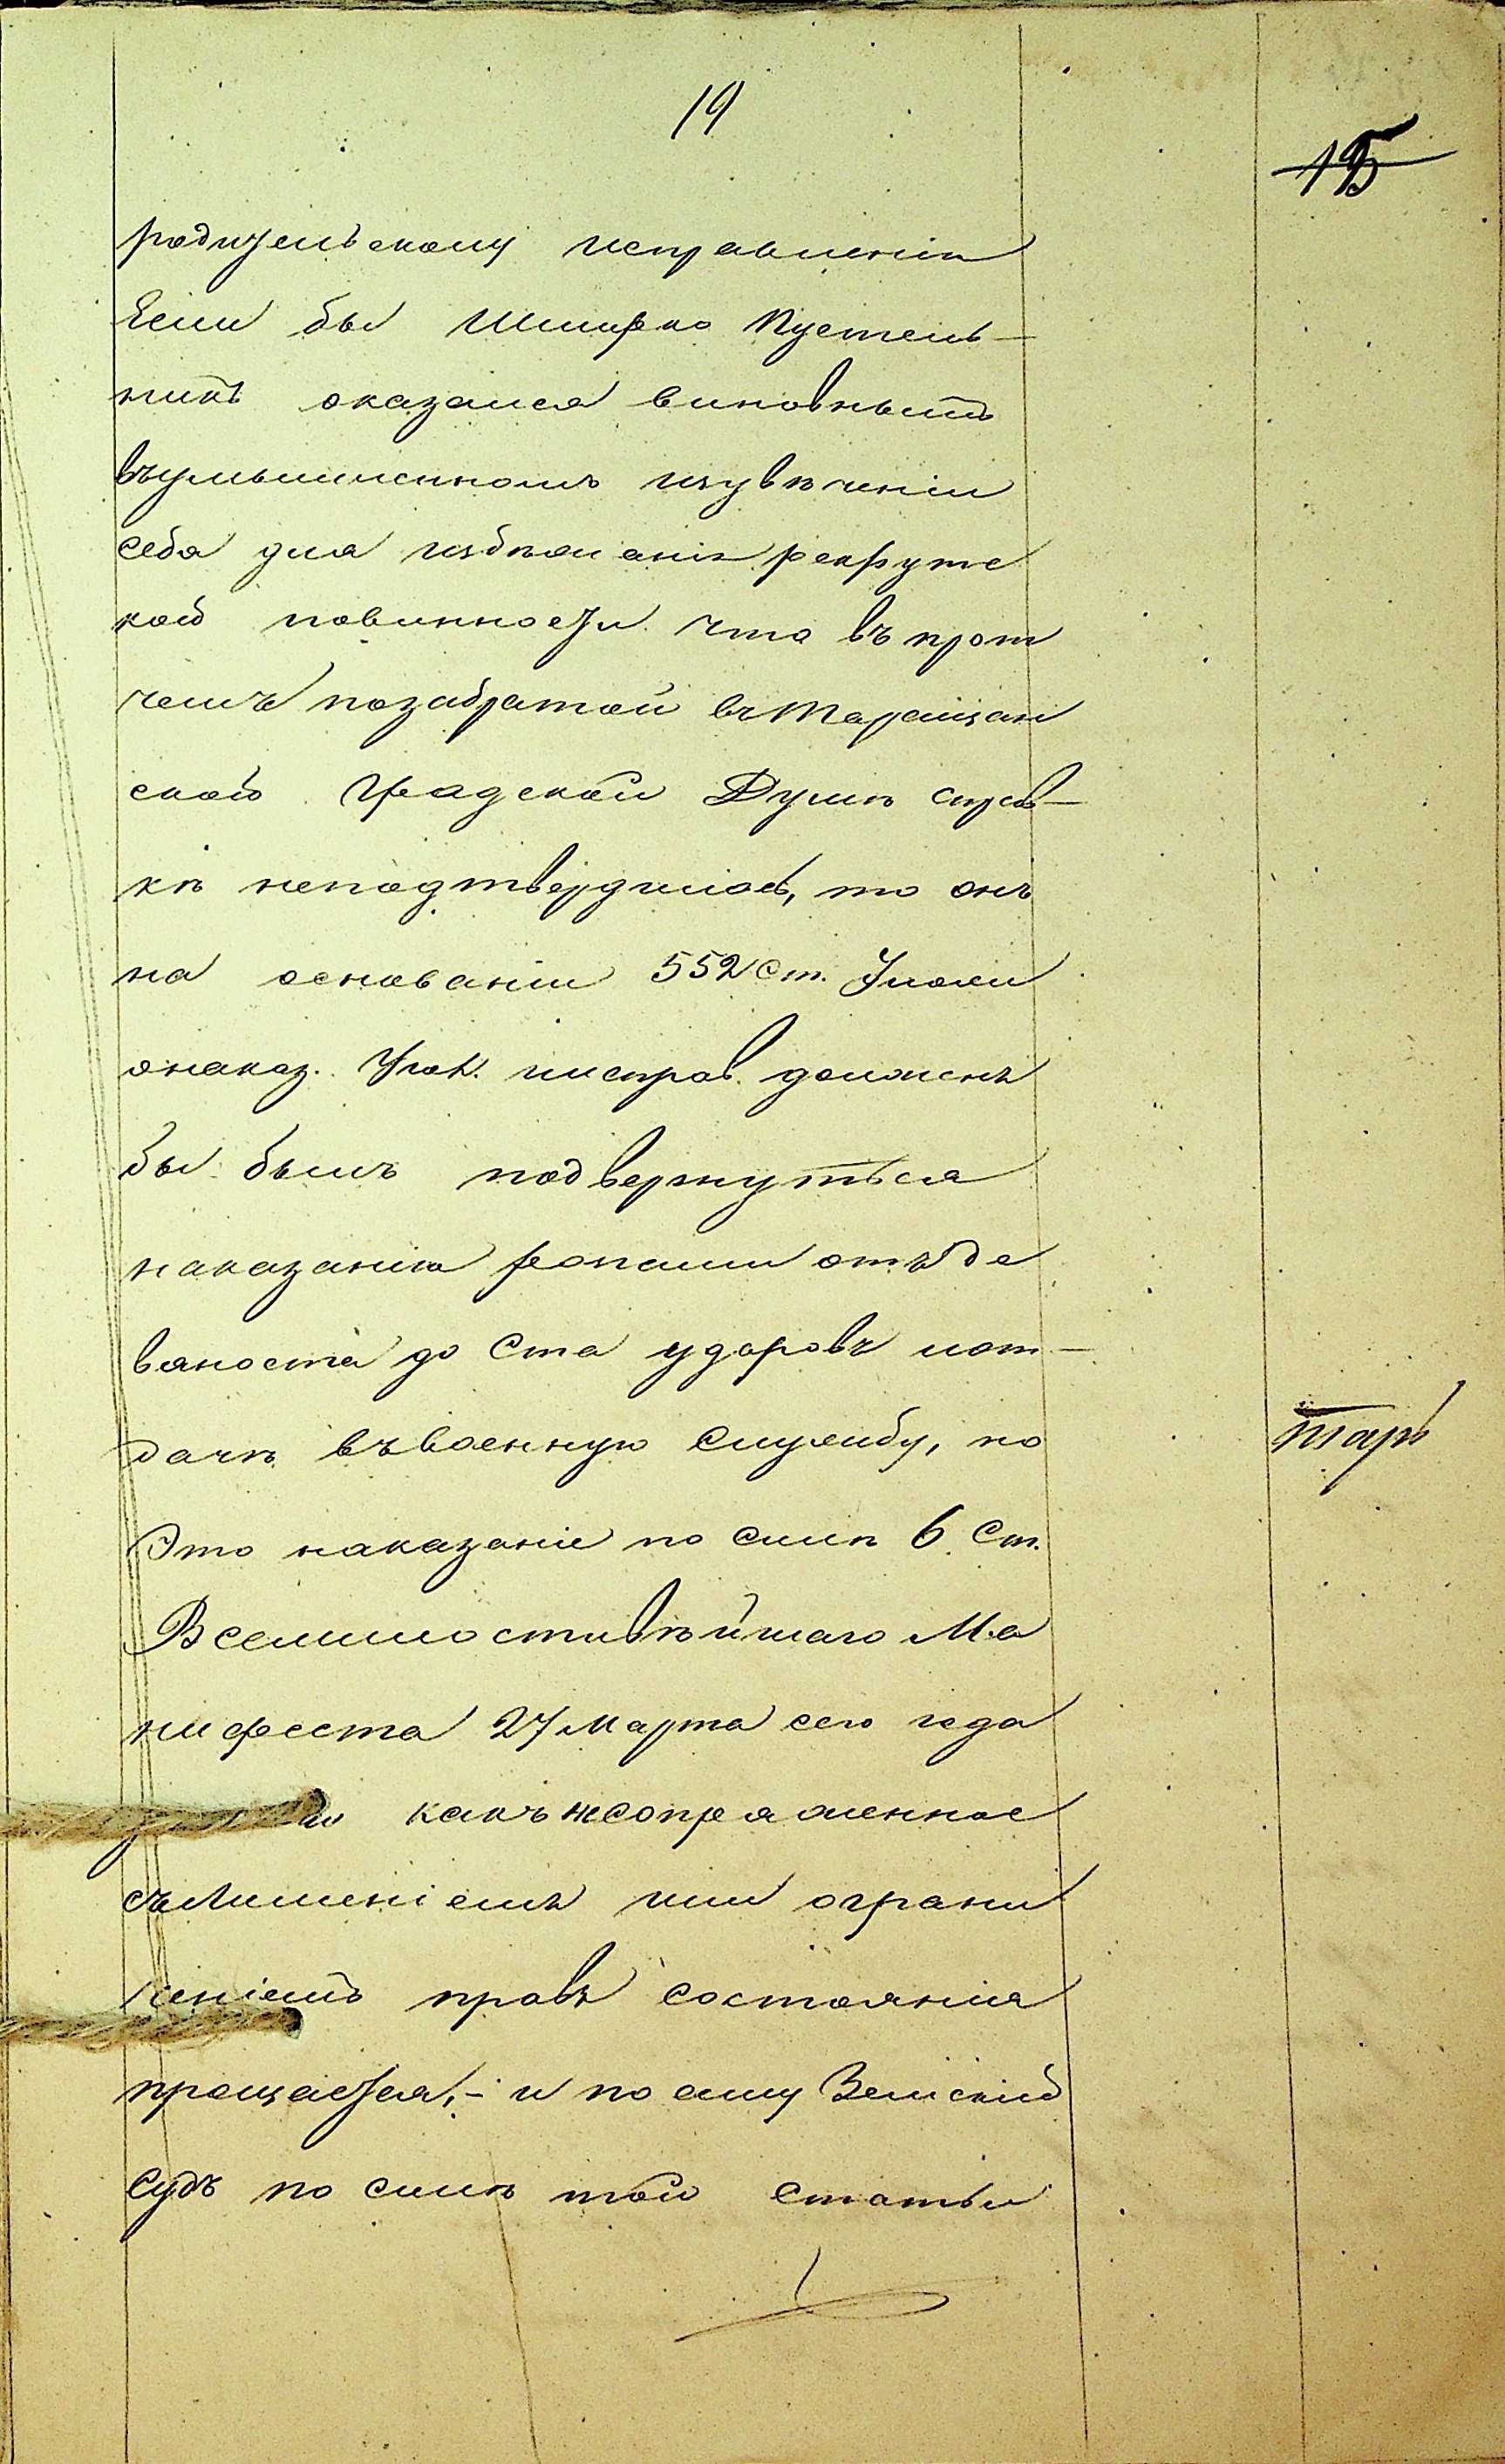 19
15
родительскому исправленію
Если бы Шмирко Пустель-
никъ оказался виновнымъ
въумышленномъ изувѣченіи
себя для избѣжанія рекрутс
кой повинности что въ проч
чемъ позабратой въ Таращан
ской Градской Думѣ справ-
кѣ неподтвердилось, то онъ
на основаніи 552 ст. Улож
онаказ. Угол. исправ. долженъ
бы былъ подвергнуться
наказанію розгами отъ де
вяноста до Ста ударовъ иот-
дачѣ въ военную Службу, но
Это наказаніе по силѣ 6. Ст.
Всемилостивѣйшаго Ма
нифеста 27 Марта сего года
какъ несопряженное
съ лишеніемъ или ограни
ченіемъ правъ состоянія
прощается, - и по ему Земскій
Судъ по силѣ той Статьи
тарь